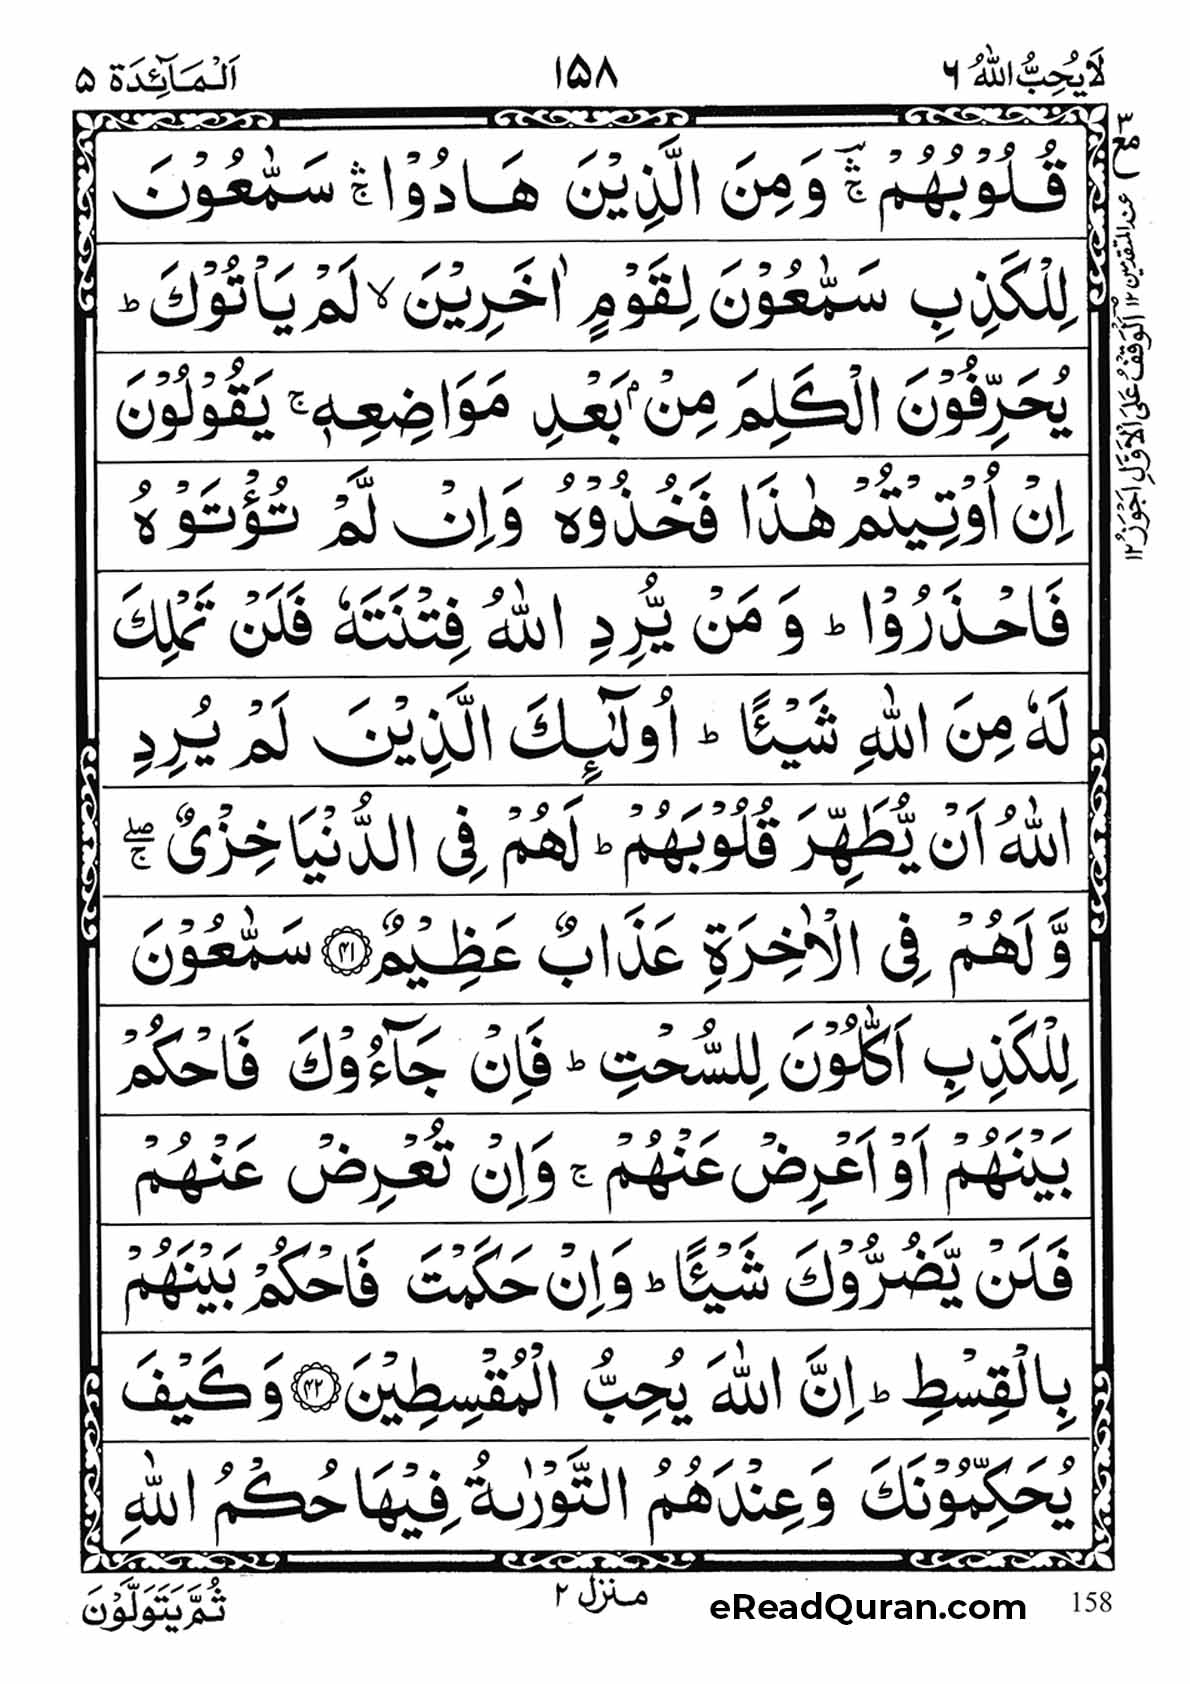 لَا يُحِبُّ اللّٰهُ ٦
١٥٨
اَلْمَآئِدَة ٥
قُلُوْبُهُمْ ۛۚ وَمِنَ الَّذِيْنَ هَادُوْا ۛۚ سَمّٰعُوْنَ
لِلْكَذِبِ سَمّٰعُوْنَ لِقَوْمٍ اٰخَرِيْنَ ۙ لَمْ يَاْتُوْكَ ؕ
يُحَرِّفُوْنَ الْكَلِمَ مِنْۢ بَعْدِ مَوَاضِعِهٖ ۚ يَقُوْلُوْنَ
اِنْ اُوْتِيْتُمْ هٰذَا فَخُذُوْهُ وَاِنْ لَّمْ تُؤْتَوْهُ
فَاحْذَرُوْا ؕ وَمَنْ يُّرِدِ اللّٰهُ فِتْنَتَهٗ فَلَنْ تَمْلِكَ
لَهٗ مِنَ اللّٰهِ شَيْـًٔا ؕ اُولٰٓئِكَ الَّذِيْنَ لَمْ يُرِدِ
اللّٰهُ اَنْ يُّطَهِّرَ قُلُوْبَهُمْ ؕ لَهُمْ فِى الدُّنْيَا خِزْىٌ ۖۚ
وَّلَهُمْ فِى الْاٰخِرَةِ عَذَابٌ عَظِيْمٌ ﴿٤١﴾ سَمّٰعُوْنَ
لِلْكَذِبِ اَكّٰلُوْنَ لِلسُّحْتِ ؕ فَاِنْ جَآءُوْكَ فَاحْكُمْ
بَيْنَهُمْ اَوْ اَعْرِضْ عَنْهُمْ ۚ وَاِنْ تُعْرِضْ عَنْهُمْ
فَلَنْ يَّضُرُّوْكَ شَيْـًٔا ؕ وَاِنْ حَكَمْتَ فَاحْكُمْ بَيْنَهُمْ
بِالْقِسْطِ ؕ اِنَّ اللّٰهَ يُحِبُّ الْمُقْسِطِيْنَ ﴿٤٢﴾ وَكَيْفَ
يُحَكِّمُوْنَكَ وَعِنْدَهُمُ التَّوْرٰىةُ فِيْهَا حُكْمُ اللّٰهِ
٣
مع
عند المتقدمين ١٢ اَلْوَقْفُ عَلَى الْاَوَّلِ اَجْوَزُ ١٢
ثُمَّ يَتَوَلَّوْنَ
منزل ٢
eReadQuran.com
158